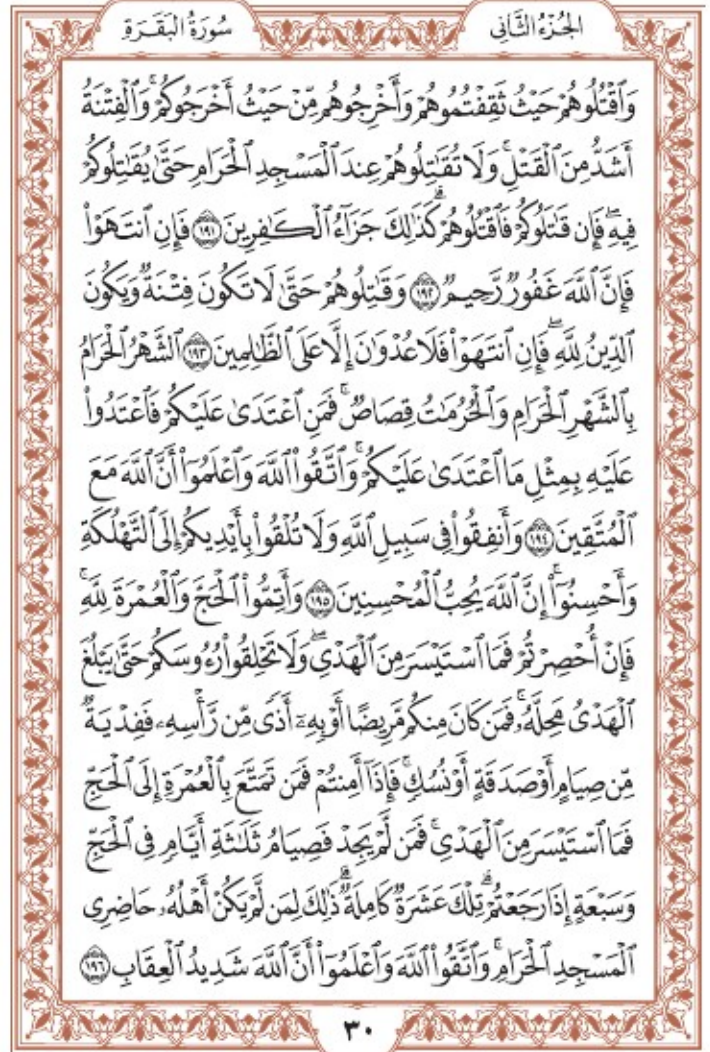 الجُزْءُ الثَّانِي
سُورَةُ الْبَقَرَةِ
وَٱقْتُلُوهُمْ حَيْثُ ثَقِفْتُمُوهُمْ وَأَخْرِجُوهُم مِّنْ حَيْثُ أَخْرَجُوكُمْ ۚ وَٱلْفِتْنَةُ
أَشَدُّ مِنَ ٱلْقَتْلِ ۚ وَلَا تُقَٰتِلُوهُمْ عِندَ ٱلْمَسْجِدِ ٱلْحَرَامِ حَتَّىٰ يُقَٰتِلُوكُمْ
فِيهِ ۖ فَإِن قَٰتَلُوكُمْ فَٱقْتُلُوهُمْ ۗ كَذَٰلِكَ جَزَآءُ ٱلْكَٰفِرِينَ ١٩١ فَإِنِ ٱنتَهَوْا۟
فَإِنَّ ٱللَّهَ غَفُورٌ رَّحِيمٌ ١٩٢ وَقَٰتِلُوهُمْ حَتَّىٰ لَا تَكُونَ فِتْنَةٌ وَيَكُونَ
ٱلدِّينُ لِلَّهِ ۖ فَإِنِ ٱنتَهَوْا۟ فَلَا عُدْوَٰنَ إِلَّا عَلَى ٱلظَّٰلِمِينَ ١٩٣ ٱلشَّهْرُ ٱلْحَرَامُ
بِٱلشَّهْرِ ٱلْحَرَامِ وَٱلْحُرُمَٰتُ قِصَاصٌ ۚ فَمَنِ ٱعْتَدَىٰ عَلَيْكُمْ فَٱعْتَدُوا۟
عَلَيْهِ بِمِثْلِ مَا ٱعْتَدَىٰ عَلَيْكُمْ ۚ وَٱتَّقُوا۟ ٱللَّهَ وَٱعْلَمُوٓا۟ أَنَّ ٱللَّهَ مَعَ
ٱلْمُتَّقِينَ ١٩٤ وَأَنفِقُوا۟ فِى سَبِيلِ ٱللَّهِ وَلَا تُلْقُوا۟ بِأَيْدِيكُمْ إِلَى ٱلتَّهْلُكَةِ
وَأَحْسِنُوٓا۟ ۛ إِنَّ ٱللَّهَ يُحِبُّ ٱلْمُحْسِنِينَ ١٩٥ وَأَتِمُّوا۟ ٱلْحَجَّ وَٱلْعُمْرَةَ لِلَّهِ ۚ
فَإِنْ أُحْصِرْتُمْ فَمَا ٱسْتَيْسَرَ مِنَ ٱلْهَدْىِ ۖ وَلَا تَحْلِقُوا۟ رُءُوسَكُمْ حَتَّىٰ يَبْلُغَ
ٱلْهَدْىُ مَحِلَّهُۥ ۚ فَمَن كَانَ مِنكُم مَّرِيضًا أَوْ بِهِۦٓ أَذًى مِّن رَّأْسِهِۦ فَفِدْيَةٌ
مِّن صِيَامٍ أَوْ صَدَقَةٍ أَوْ نُسُكٍ ۚ فَإِذَآ أَمِنتُمْ فَمَن تَمَتَّعَ بِٱلْعُمْرَةِ إِلَى ٱلْحَجِّ
فَمَا ٱسْتَيْسَرَ مِنَ ٱلْهَدْىِ ۚ فَمَن لَّمْ يَجِدْ فَصِيَامُ ثَلَٰثَةِ أَيَّامٍ فِى ٱلْحَجِّ
وَسَبْعَةٍ إِذَا رَجَعْتُمْ ۗ تِلْكَ عَشَرَةٌ كَامِلَةٌ ۗ ذَٰلِكَ لِمَن لَّمْ يَكُنْ أَهْلُهُۥ حَاضِرِى
ٱلْمَسْجِدِ ٱلْحَرَامِ ۚ وَٱتَّقُوا۟ ٱللَّهَ وَٱعْلَمُوٓا۟ أَنَّ ٱللَّهَ شَدِيدُ ٱلْعِقَابِ ١٩٦
٣٠